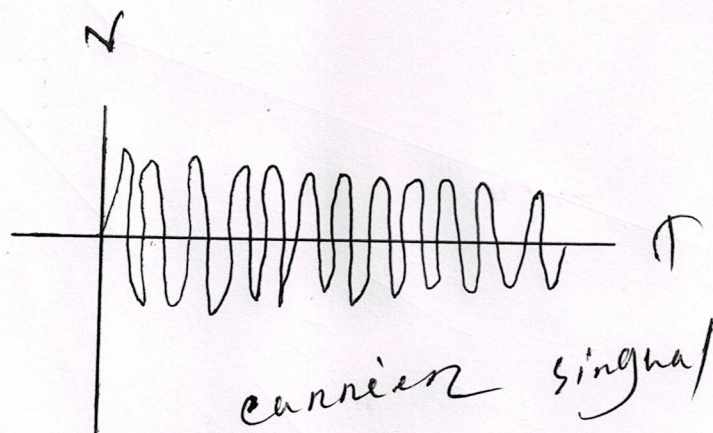 V
T
carrier singnal